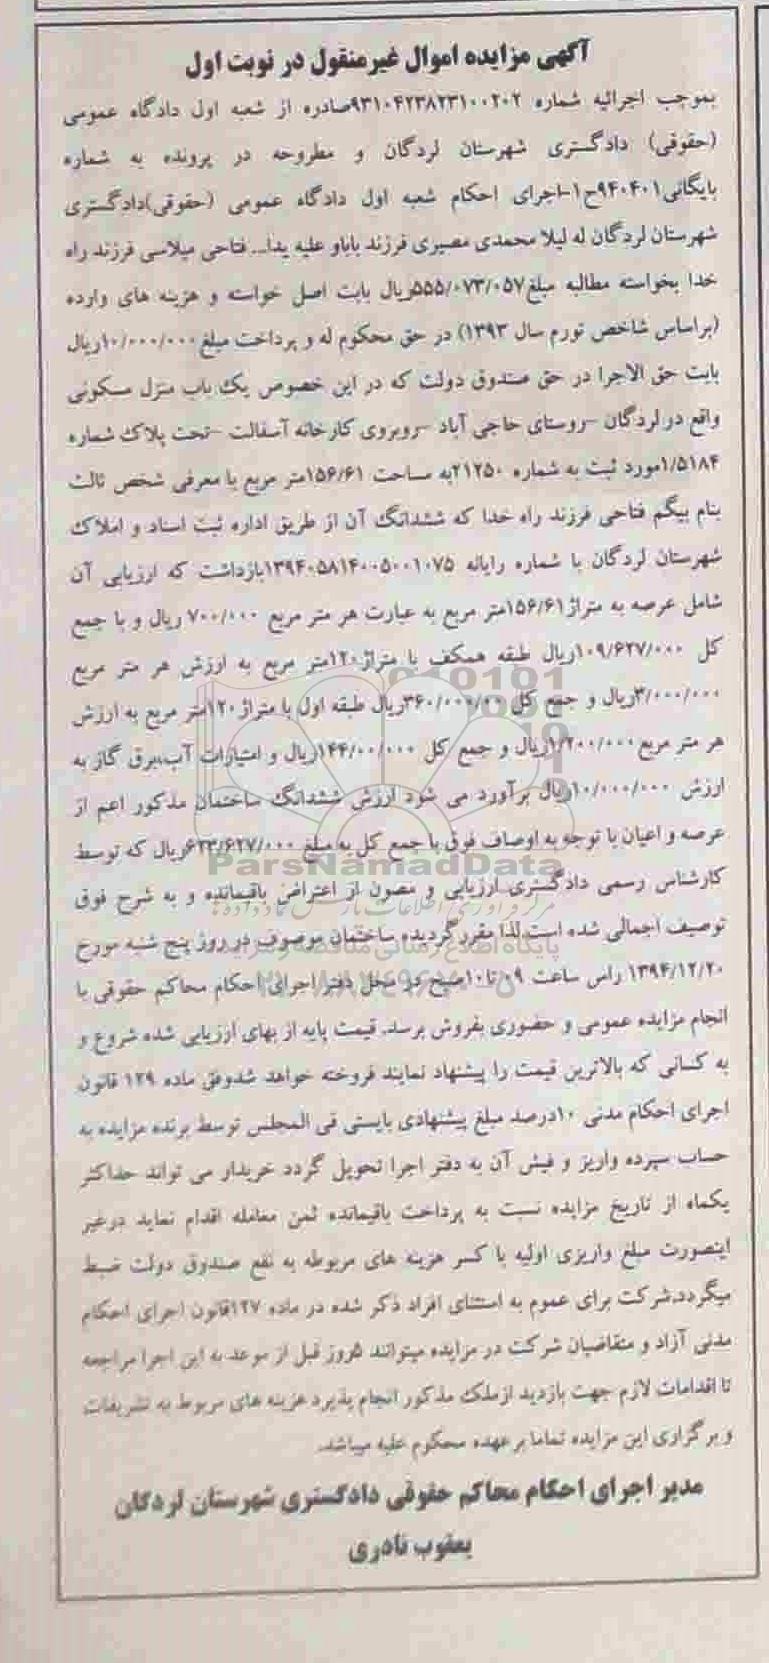 آگهی مزایده اموال غیرمنقول در نوبت اول
بموجب اجرائیه شماره ۹۳۱۰۴۲۳۸۲۳۱۰۰۲۰۲صادره از شعبه اول دادگاه عمومی
(حقوقی) دادگستری شهرستان لردگان و مطروحه در پرونده به شماره
بایگانی۹۴۰۴۰۱ح۱-اجرای احکام شعبه اول دادگاه عمومی (حقوقی)دادگستری
شهرستان لردگان له لیلا محمدی مصیری فرزند باباو علیه یدا... فتاحی میلاسی فرزند راه
خدا بخواسته مطالبه مبلغ۵۵۵/۰۷۳/۰۵۷ریال بابت اصل خواسته و هزینه های وارده
(براساس شاخص تورم سال ۱۳۹۳) در حق محکوم له و پرداخت مبلغ۱۰/۰۰۰/۰۰۰ریال
بابت حق الاجرا در حق صندوق دولت که در این خصوص یک باب منزل مسکونی
واقع در لردگان –روستای حاجی آباد –روبروی کارخانه آسفالت –تحت پلاک شماره
۱/۵۱۸۴مورد ثبت به شماره ۲۱۲۵۰به مساحت ۱۵۶/۶۱متر مربع با معرفی شخص ثالث
بنام بیگم فتاحی فرزند راه خدا که ششدانگ آن از طریق اداره ثبت اسناد و املاک
شهرستان لردگان با شماره رایانه ۱۳۹۴۰۵۸۱۴۰۰۵۰۰۱۰۷۵بازداشت که ارزیابی آن
شامل عرصه به متراژ۱۵۶/۶۱متر مربع به عبارت هر متر مربع ۷۰۰/۰۰۰ ریال و با جمع
کل ۱۰۹/۶۲۷/۰۰۰ریال طبقه همکف با متراژ۱۲۰متر مربع به ارزش هر متر مربع
۳/۰۰۰/۰۰۰ریال و جمع کل ۳۶۰/۰۰۰/۰۰ریال طبقه اول با متراژ۱۲۰متر مربع به ارزش
هر متر مربع۱/۲۰۰/۰۰۰ریال و جمع کل ۱۴۴/۰۰/۰۰۰ریال و امتیازات آب،برق گاز به
ارزش ۱۰/۰۰۰/۰۰۰ریال برآورد می شود ارزش ششدانگ ساختمان مذکور اعم از
عرصه و اعیان با توجه به اوصاف فوق با جمع کل به مبلغ ۶۲۳/۶۲۷/۰۰۰ریال که توسط
ParsNamadData
کارشناس رسمی دادگستری ارزیابی و مصون از اعتراض باقیمانده و به شرح فوق
توصیف اجمالی شده است.لذا مقرر گردیده ساختمان موصوف در روز پنج شنبه مورخ
پایگاه اطلاع رسانی مناقصه و مزایده
۱۳۹۴/۱۲/۲۰ راس ساعت ۰۹ تا۱۰صبح در محل دفتر اجرای احکام محاکم حقوقی با
انجام مزایده عمومی و حضوری بفروش برسد. قیمت پایه از بهای ارزیابی شده شروع و
به کسانی که بالاترین قیمت را پیشنهاد نمایند فروخته خواهد شدوفق ماده ۱۲۹ قانون
اجرای احکام مدنی ۱۰درصد مبلغ پیشنهادی بایستی فی المجلس توسط برنده مزایده به
حساب سپرده واریز و فیش آن به دفتر اجرا تحویل گردد خریدار می تواند حداکثر
یکماه از تاریخ مزایده نسبت به پرداخت باقیمانده ثمن معامله اقدام نماید درغیر
اینصورت مبلغ واریزی اولیه با کسر هزینه های مربوطه به نفع صندوق دولت ضبط
میگردد.شرکت برای عموم به استثنای افراد ذکر شده در ماده ۱۲۷قانون اجرای احکام
مدنی آزاد و متقاضیان شرکت در مزایده میتوانند ۵روز قبل از موعد به این اجرا مراجعه
تا اقدامات لازم جهت بازدید ازملک مذکور انجام پذیرد هزینه های مربوط به تشریفات
و برگزاری این مزایده تماما بر عهده محکوم علیه میباشد.
مدیر اجرای احکام محاکم حقوقی دادگستری شهرستان لردگان
یعقوب نادری